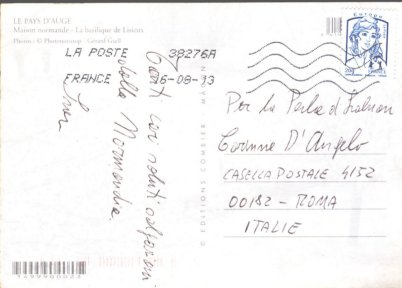 LE PAYS D'AUGE
Maison normande - La basilique de Lisieux
Photos : © Photononstop - Gérard Guit
LA POSTE 38276A
FRANCE 16-08-13
EUROPE
FRANCE
Tanti cari saluti
dalla Normandia.
© EDITIONS COMBIER MÂCON
Per La Perla d'
Corinne D'Angelo
CASELLA POSTALE 4152
00182 - ROMA
ITALIE